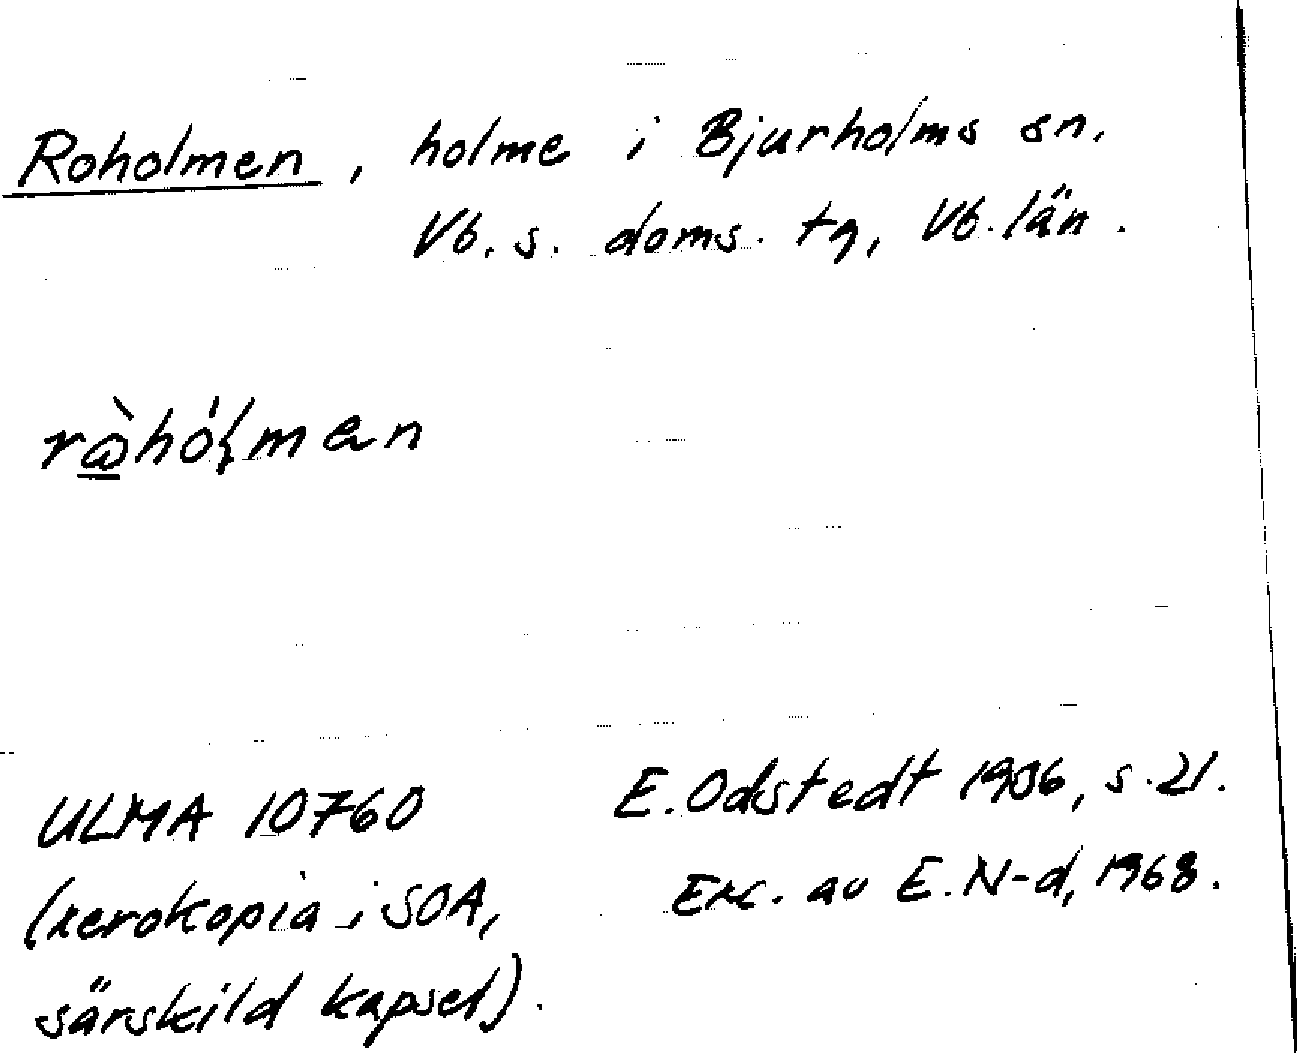 Roholmen, holme i Bjurholms sn.
Vb. s. doms. tg, Vb. län.
ULMA 10760
E. Odstedt 1936, s. 21.
(xerokopia i SOA,
Exc. av E. N-d, 1968.
särskild kapsel).